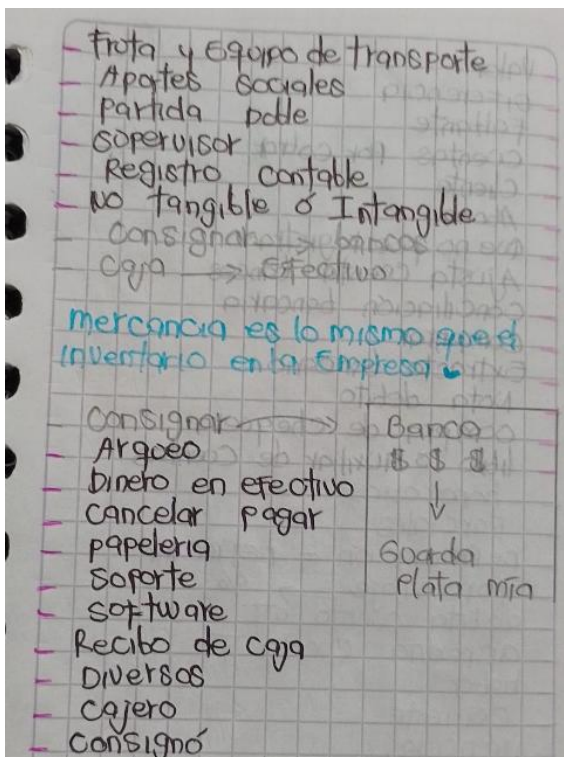 - Frota y Equipo de transporte
- Apotes sociales
- partida doble
- sopervisor
- Registro contable
- No tangible ó Intangible
- consignar → bancos
- caja → Efectivo
mercancia es lo mismo que el
inventario en la Empresa
- consignar → Banco
- Arqueo $ $ $
- Dinero en efectivo ↓
- cancelar pagar
- papeleria Goarda
- soporte plata mia
- software
- Recibo de caja
- Diversos
- cajero
- consignó